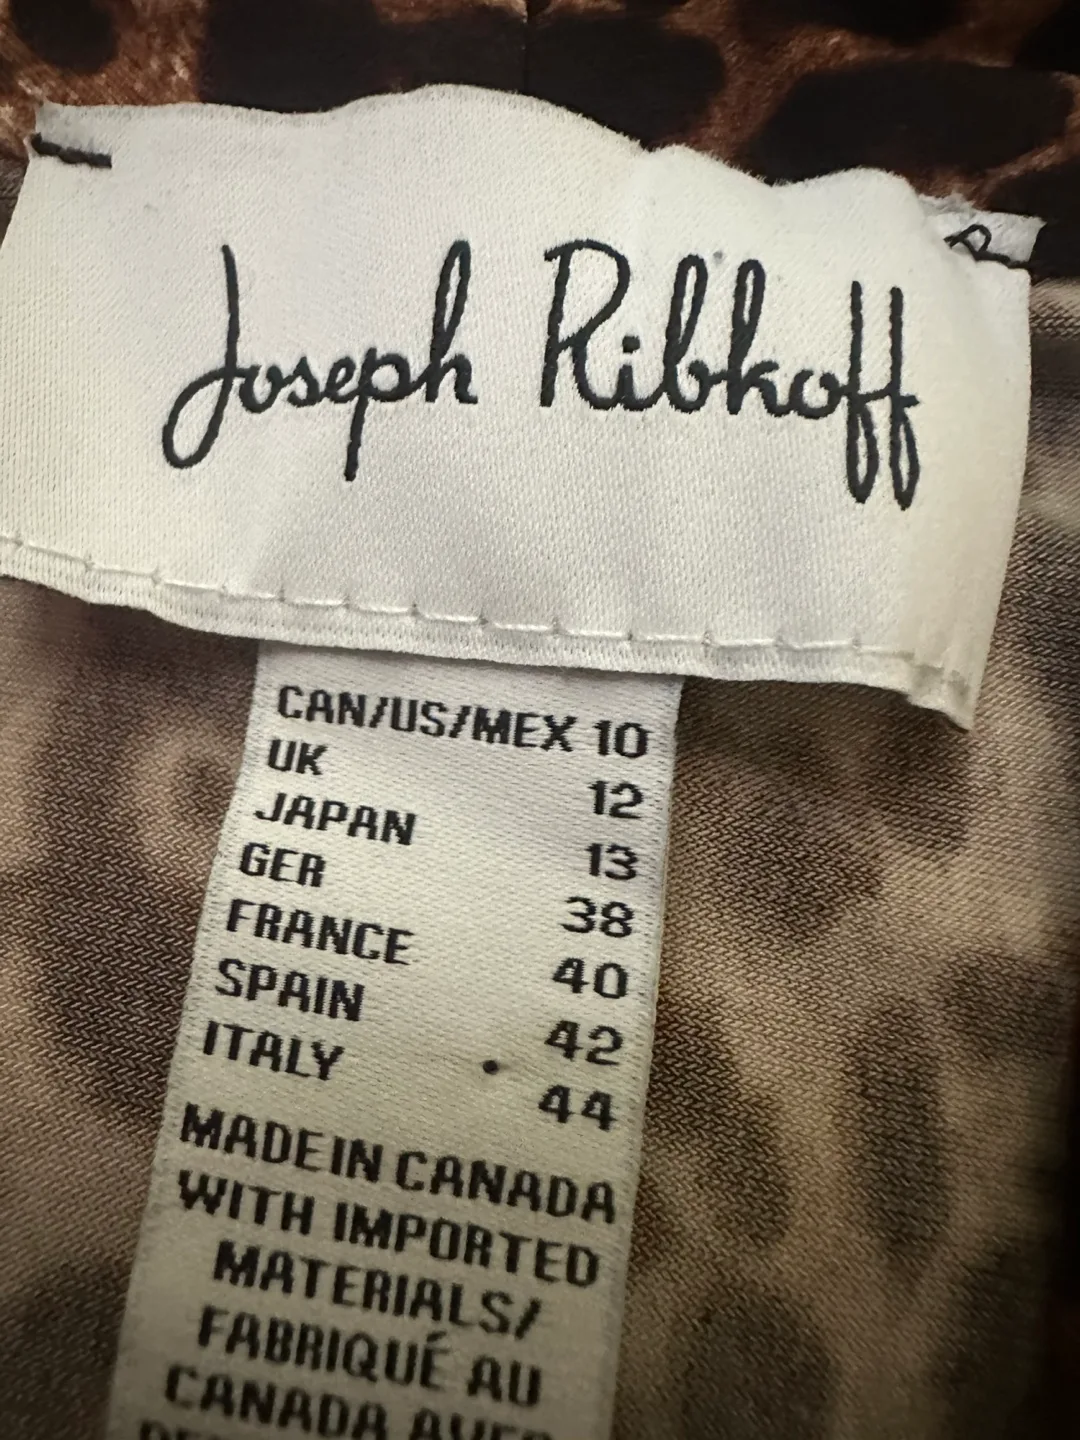 Joseph Ribkoff
CAN/US/MEX 10
UK 12
JAPAN 13
GER 38
FRANCE 40
SPAIN 42
ITALY 44
MADE IN CANADA
WITH IMPORTED
MATERIALS/
FABRIQUÉ AU
CANADA